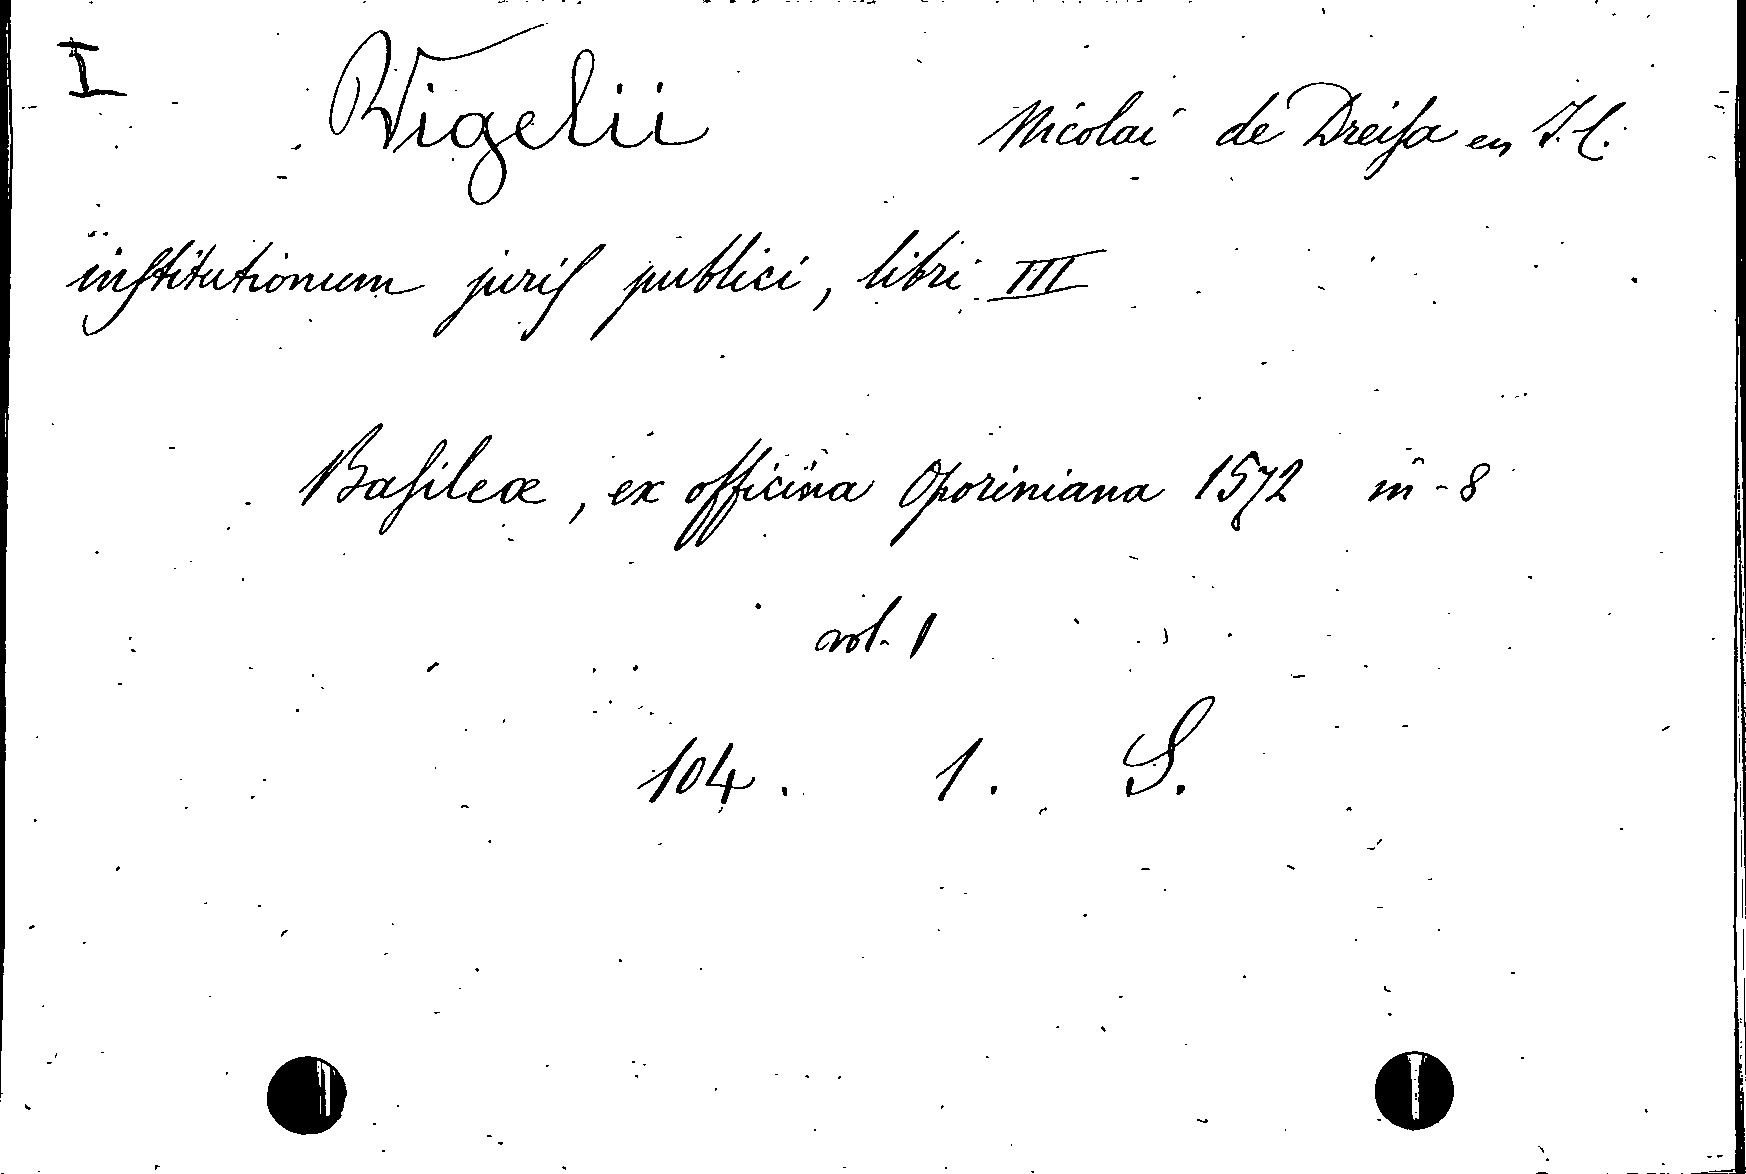 I Vigelii Nicolai de Dreisa en J.C.
inſtitutionum juriſ publici, libri III
Baſileœ, ex officina Oporiniana 1572 in-8
vol. 1
104. 1. S.